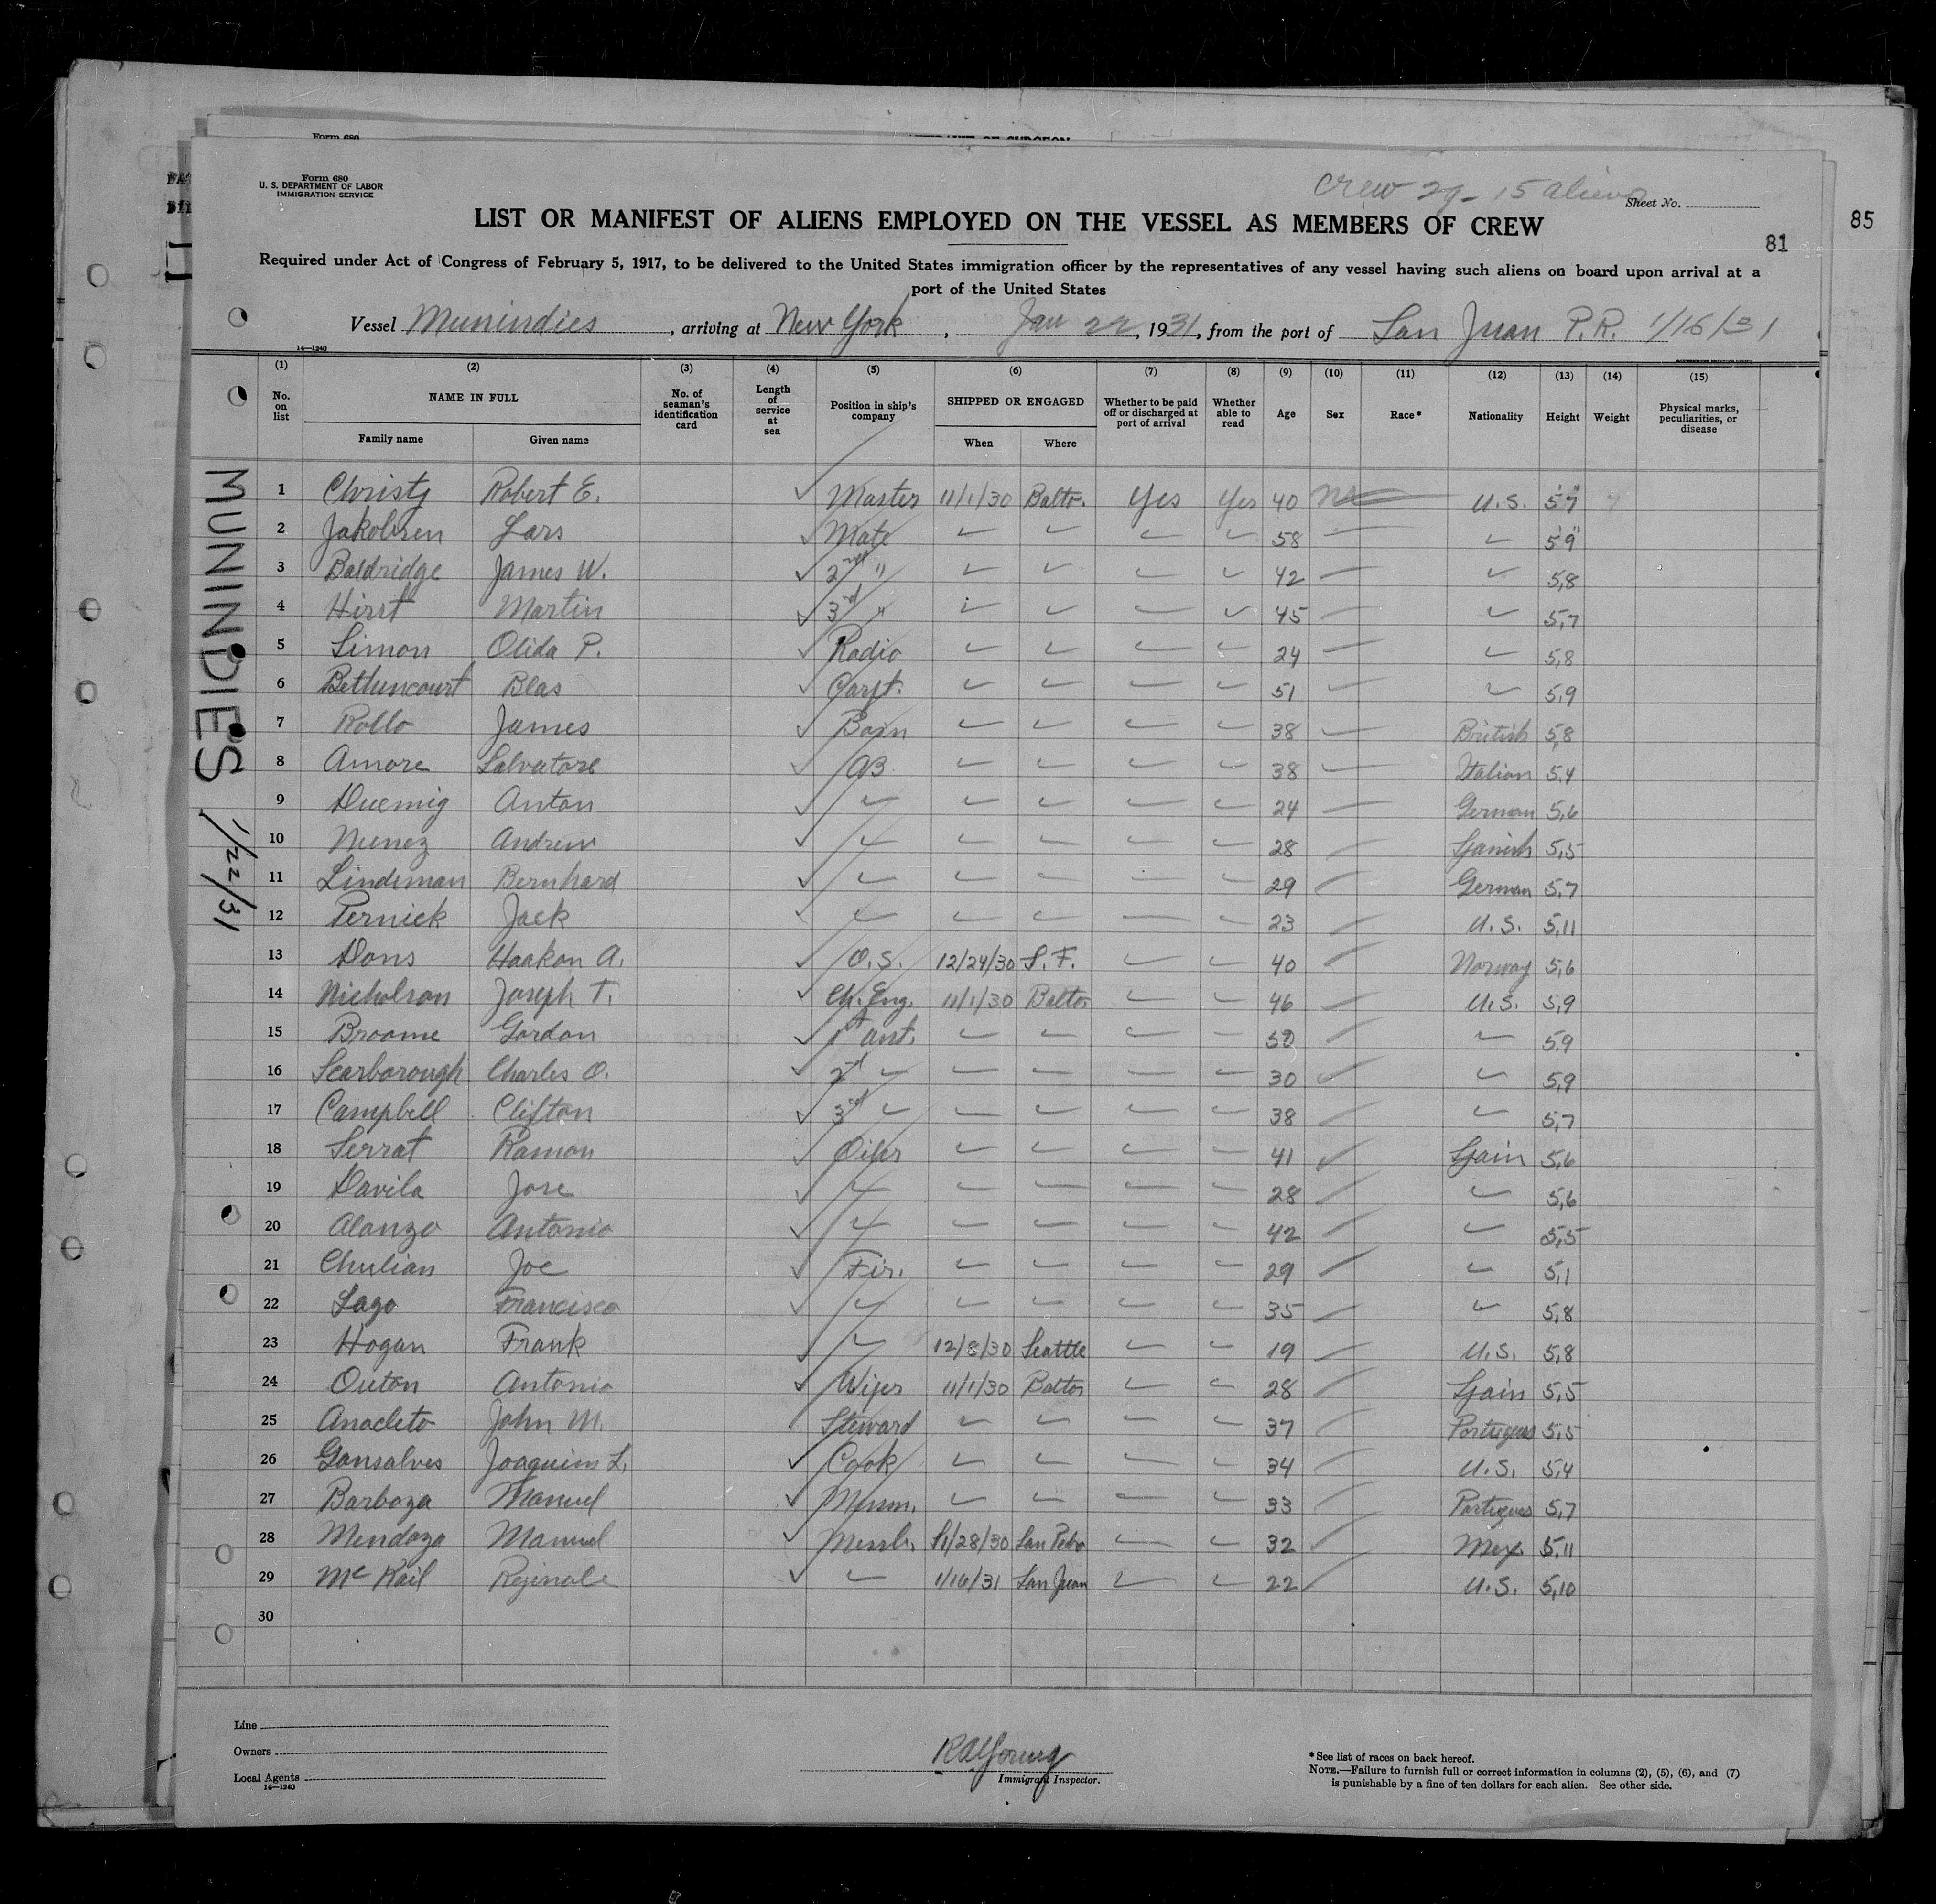 Form 680
U. S. DEPARTMENT OF LABOR
IMMIGRATION SERVICE
Crew 29 - 15 aliens
Sheet No.
LIST OR MANIFEST OF ALIENS EMPLOYED ON THE VESSEL AS MEMBERS OF CREW
85
81
Required under Act of Congress of February 5, 1917, to be delivered to the United States immigration officer by the representatives of any vessel having such aliens on board upon arrival at a
port of the United States
Vessel Munindies, arriving at New York, Jan 22, 1931, from the port of San Juan P.R. 1/16/31
14—1240
(1) (2) (3) (4) (5) (6) (7) (8) (9) (10) (11) (12) (13) (14) (15)
No. on list NAME IN FULL No. of seaman's identification card Length of service at sea Position in ship's company SHIPPED OR ENGAGED Whether to be paid off or discharged at port of arrival Whether able to read Age Sex Race* Nationality Height Weight Physical marks, peculiarities, or disease
Family name Given name When Where
MUNINDIES 1/22/31
1 Christy Robert E. ✓ Master 11/1/30 Balto. Yes Yes 40 M U.S. 5'7"
2 Jakobsen Lars ✓ Mate ✓ ✓ ✓ ✓ 58 ✓ 5'9"
3 Baldridge James W. ✓ 2nd " ✓ ✓ ✓ ✓ 42 ✓ 5,8
4 Hirst Martin ✓ 3rd " ✓ ✓ ✓ ✓ 45 ✓ 5,7
5 Simon Olida P. ✓ Radio ✓ ✓ ✓ ✓ 24 ✓ 5,8
6 Bettencourt Blas ✓ Carpt. ✓ ✓ ✓ ✓ 51 ✓ 5,9
7 Rollo James ✓ Bosn ✓ ✓ ✓ ✓ 38 British 5,8
8 Amore Salvatore ✓ AB ✓ ✓ ✓ ✓ 38 Italian 5,4
9 Duemig Anton ✓ ✓ ✓ ✓ ✓ ✓ 24 German 5,6
10 Nunez Andrew ✓ ✓ ✓ ✓ ✓ ✓ 28 Spanish 5,5
11 Lindeman Bernhard ✓ ✓ ✓ ✓ ✓ ✓ 29 German 5,7
12 Pernick Jack ✓ ✓ ✓ ✓ ✓ ✓ 23 U.S. 5,11
13 Dons Haakon A. ✓ O.S. 12/24/30 S.F. ✓ ✓ 40 Norway 5,6
14 Nicholson Joseph T. ✓ Ch. Eng. 11/1/30 Balto. ✓ ✓ 46 U.S. 5,9
15 Broome Gordon ✓ 1st asst. ✓ ✓ ✓ ✓ 50 ✓ 5,9
16 Scarborough Charles O. ✓ 2nd ✓ ✓ ✓ ✓ ✓ 30 ✓ 5,9
17 Campbell Clifton ✓ 3rd ✓ ✓ ✓ ✓ ✓ 38 ✓ 5,7
18 Serrat Ramon ✓ Oiler ✓ ✓ ✓ ✓ 41 Spain 5,6
19 Davila Jose ✓ ✓ ✓ ✓ ✓ ✓ 28 ✓ 5,6
20 Alonzo Antonio ✓ ✓ ✓ ✓ ✓ ✓ 42 ✓ 5,5
21 Chulian Joe ✓ Fir. ✓ ✓ ✓ ✓ 29 ✓ 5,1
22 Lago Francisco ✓ ✓ ✓ ✓ ✓ ✓ 35 ✓ 5,8
23 Hogan Frank ✓ ✓ 12/8/30 Seattle ✓ ✓ 19 U.S. 5,8
24 Outon Antonio ✓ Wiper 11/1/30 Balto. ✓ ✓ 28 Spain 5,5
25 Anacleto John M. Steward ✓ ✓ ✓ ✓ 37 Portugues 5,5
26 Gonsalves Joaquim L. ✓ Cook ✓ ✓ ✓ ✓ 34 U.S. 5,4
27 Barboza Manuel ✓ Messm. ✓ ✓ ✓ ✓ 33 Portugues 5,7
28 Mendoza Manuel ✓ Messb. 11/28/30 San Pedro ✓ ✓ 32 Mex. 5,11
29 McKail Reginale ✓ ✓ 1/16/31 San Juan ✓ ✓ 22 U.S. 5,10
30
Line
Owners
Local Agents
14—1240
R A Young
Immigrant Inspector.
*See list of races on back hereof.
NOTE.—Failure to furnish full or correct information in columns (2), (5), (6), and (7)
is punishable by a fine of ten dollars for each alien. See other side.